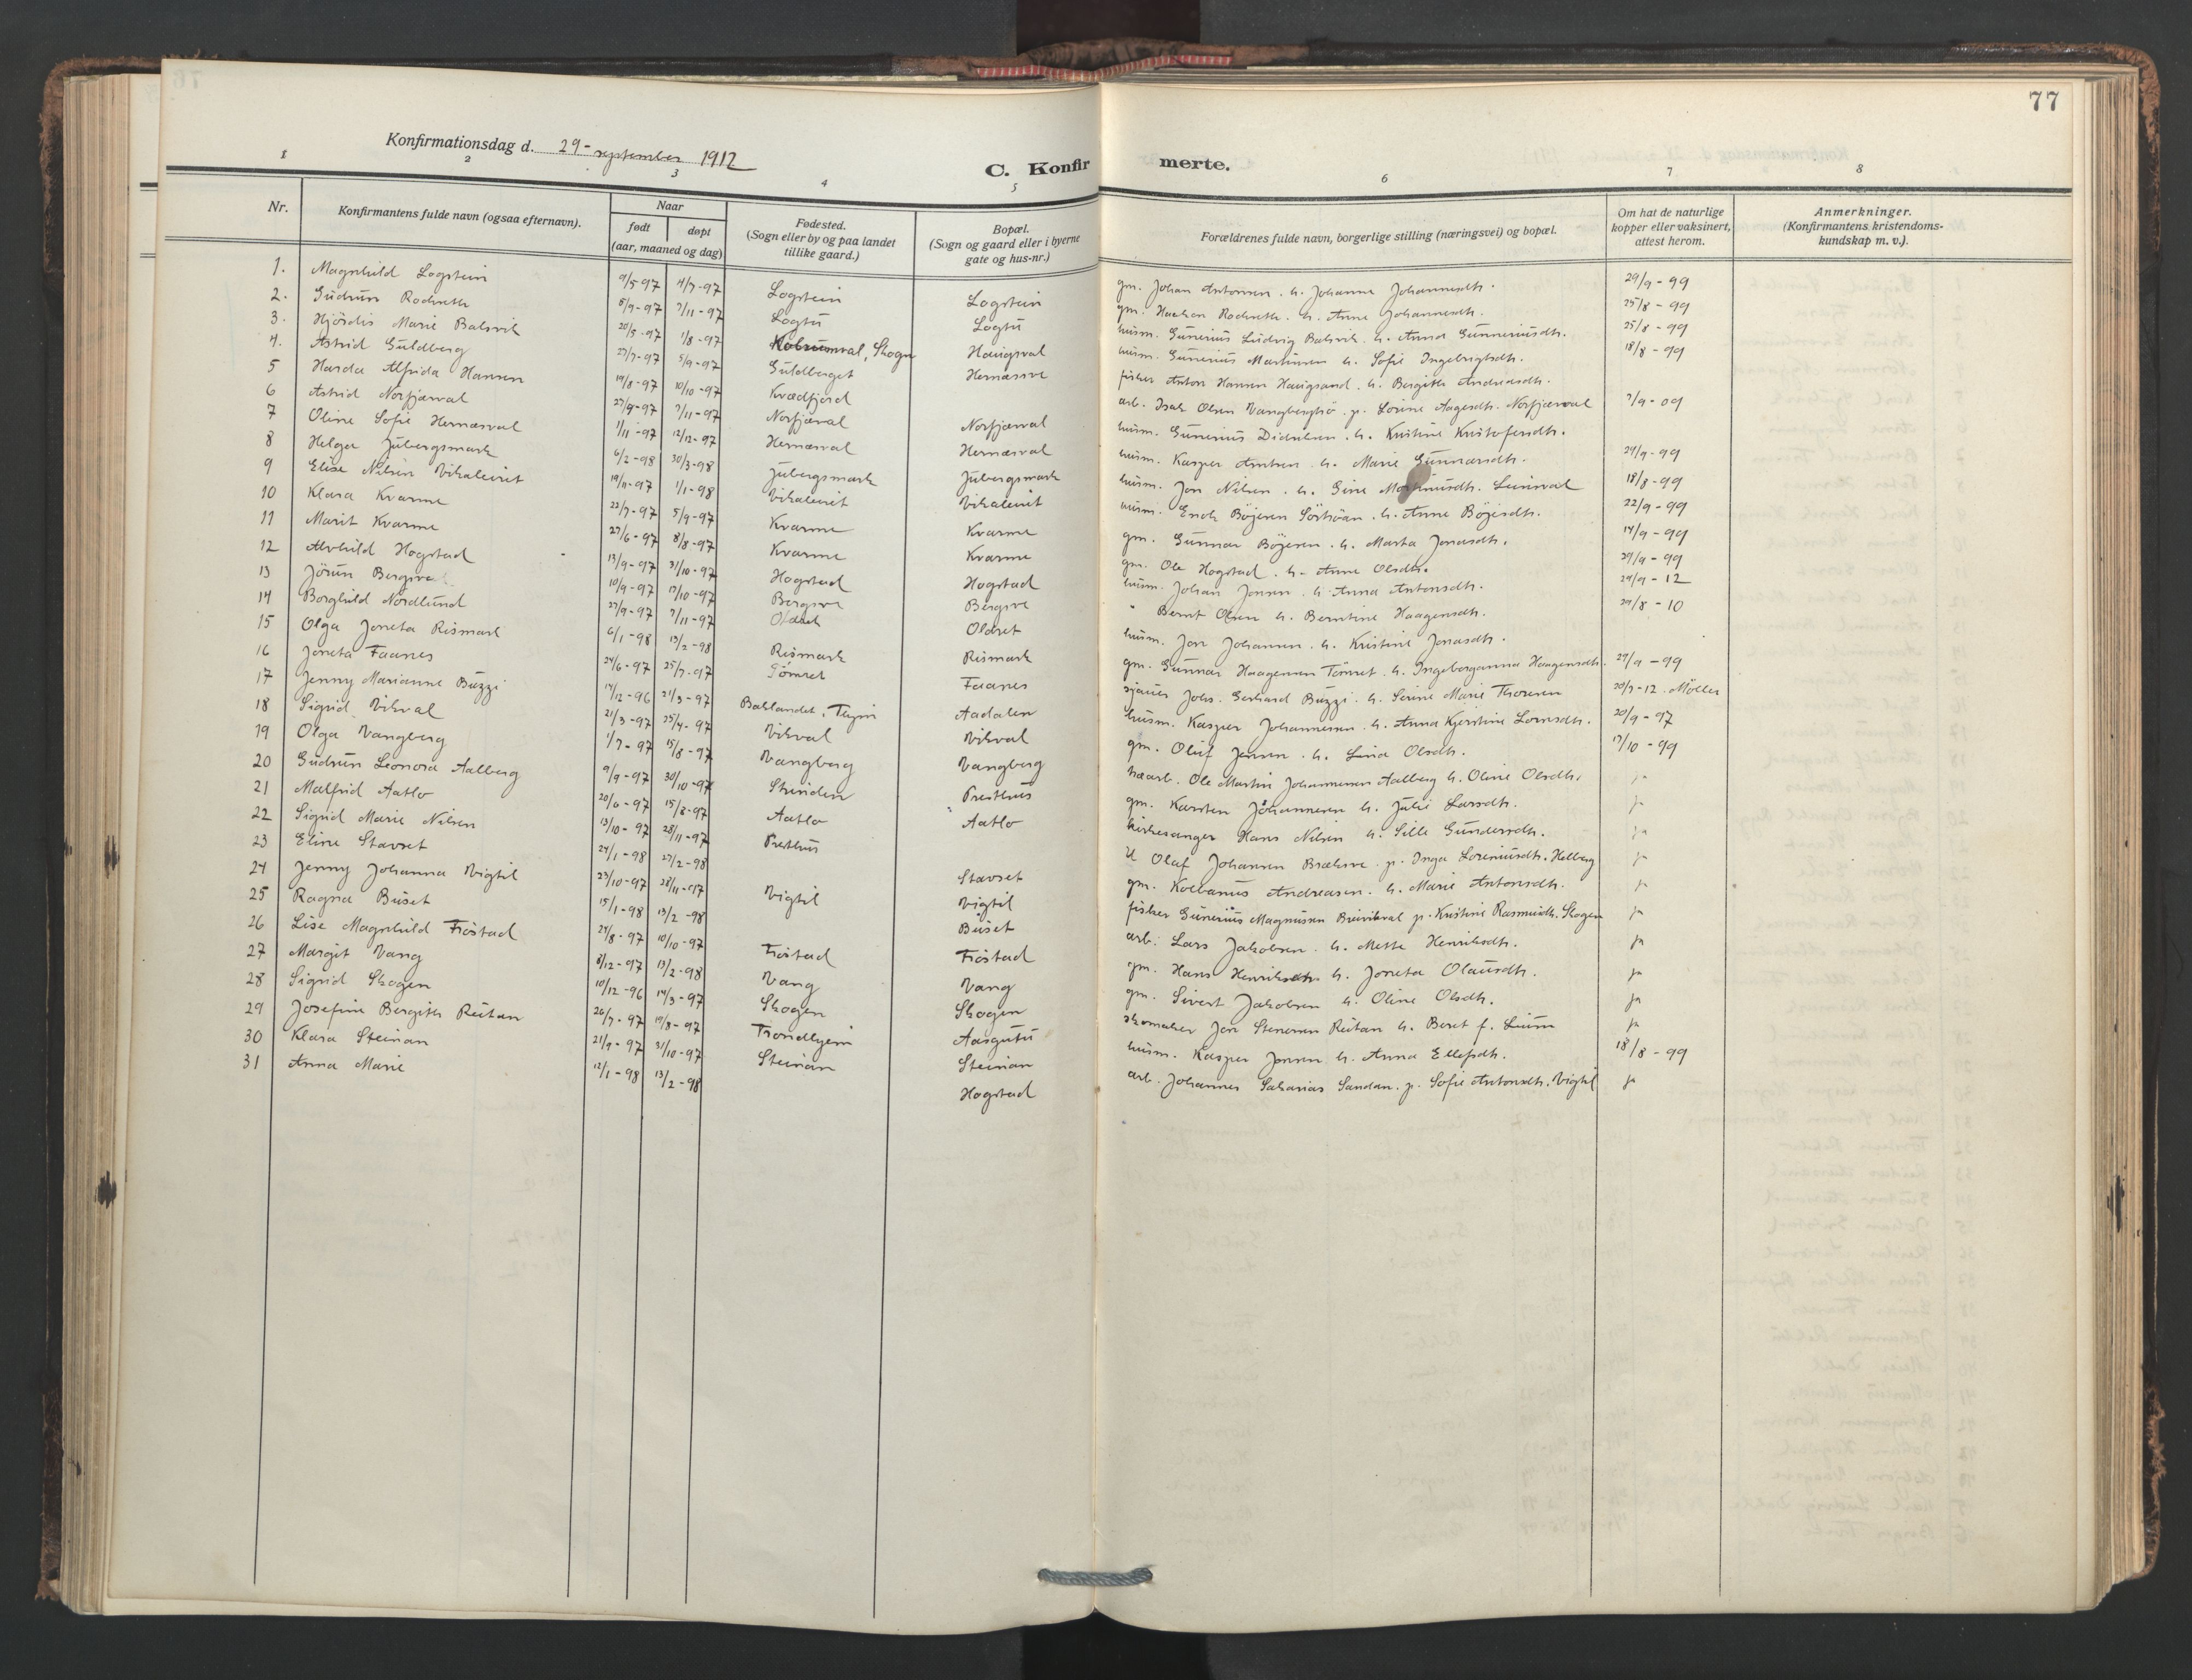 77
Konfirmationsdag d. 29-september 1912
C. Konfirmerte.
1 2 3 4 5 6 7 8
Nr. Konfirmantens fulde navn (ogsaa efternavn). Naar født døpt (aar, maaned og dag) Fødested. (Sogn eller by og paa landet tillike gaard.) Bopæl. (Sogn og gaard eller i byerne gate og hus-nr.) Forældrenes fulde navn, borgerlige stilling (næringsvei) og bopæl. Om hat de naturlige kopper eller vaksinert, attest herom. Anmerkninger. (Konfirmantens kristendoms-kundskap m. v.).
1. Magnhild Logstein 9/5-97 4/7-97 Logstein Logstein gm. Johan Antonsen. h. Johanne Johannesdh. 29/9-99
2. Gudrun Rodneth 5/9-97 7/11-97 Logtu Logtu gm. Haakon Rodneth. h. Anne Johannesdh. 25/8-99
3. Hjördis Marie Balsvik 20/5-97 1/8-97 Skogn Haugsval husm. Gunerius Ludvig Balsvik. h. Anna Gunneriusdh. 25/8-99
4. Astrid Guldberg 27/7-97 5/9-97 Guldberget Hernæsve husm. Gunerius Martinsen h. Sofie Ingebrigtsdh. 18/8-99
5 Harda Alfrida Hansen 14/8-97 10/10-97 Kvædfjord fisker Anton Hansen Haugsand. h. Bergitte Andreasdh.
6 Astrid Norfjærval 27/9-97 7/11-97 Norfjærval Norfjærval arb. Isak Olsen Vangberghö. p. Lorine Aagesdh. Norfjærval 7/9-09
7 Oline Sofie Hernæsval 1/11-97 12/12-97 Hernæsval Hernæsval husm. Gunerius Didriksen. h. Kristine Kristofersdh.
8 Helga Jubergsmark 6/2-98 30/3-98 Jubergsmark Jubergsmark husm. Kasper Arntsen. h. Marie Gunnarsdh. 24/9-99
9 Elise Nilsen Vikaleiret 19/11-97 1/1-98 Vikaleiret Vikaleiret husm. Jon Nilsen. h. Gine Martinusdh. Leinsval 18/8-99
10 Klara Kvarme 22/7-97 5/9-97 Kvarme Kvarme husm. Enok Böjesen Sörhöan. h. Anne Böjesdh. 22/9-99
11 Marit Kvarme 27/6-97 8/8-97 Kvarme Kvarme gm. Gunnar Böjesen. h. Marta Jonasdh. 14/9-99
12 Alvhild Hogstad 13/9-97 31/10-97 Hogstad Hogstad gm. Ole Hogstad. h. Anne Olsdh. 29/9-99
13 Jörun Bergsve 10/9-97 17/10-97 Bergsve Bergsve husm. Johan Jonsen. h. Anna Antonsdh. 24/9-12
14 Borghild Nordlund 27/9-97 7/11-97 Oldret Oldret " Bernt Olsen h. Berntine Haagensdh. 29/8-10
15 Olga Joneta Rismark 6/1-98 13/2-98 Rismark Rismark husm. Jon Johansen. h. Kristine Jonasdh.
16 Joneta Faanes 24/6-97 25/7-97 Tömret Faanes gm. Gunnar Haagensen Tömret. h. Ingeborganna Haagensdh. 29/9-99
17 Jenny Marianne Buzzi 14/12-96 21/3-97 Baklandet. Thjm Aadalen sjauer Johs. Gerhard Buzzi. h. Serine Marie Thoresen 20/7-12. Möller
18 Sigrid Vikval 21/3-97 25/4-97 Vikval Vikval husm. Kasper Johannesen. h. Anna Kjerstine Lornsdh. 20/9-97
19 Olga Vangberg 1/7-97 15/8-97 Vangberg Vangberg gm. Oluf Jensen. h. Lina Olsdh. 17/10-99
20 Gudrun Leonora Aalberg 9/9-97 30/10-97 Strinden Presthus Ole Martin Johannesen Aalberg h. Oline Olsdh. ja
21 Malfrid Aatlo 20/6-97 15/8-97 Aatlo Aatlo gm. Karsten Johannesen h. Julie Larsdh. ja
22 Sigrid Marie Nilsen 13/10-97 28/11-97 Presthus kirkesanger Hans Nilsen h. Sille Gundersdh. ja
23 Eline Stavset 24/1-98 27/2-98 Stavset U Olaf Johansen Brækve. p. Inga Loreniusdh. Helberg ja
24 Jenny Johanna Vigtil 23/10-97 28/11-97 Vigtil Vigtil gm. Kolbanus Andreasen. h. Marie Antonsdh. ja
25 Ragna Buset 15/1-98 13/2-98 Buset fisker Gunerius Magnusen Breivikval p. Kristine Rasmusdh. Skogen ja
26 Lise Magnhild Fiöstad 24/8-97 10/10-97 Fiöstad Fiöstad arb. Lars Jakobsen. h. Mette Henriksdh. ja
27 Margit Vang 8/12-97 13/2-98 Vang Vang gm. Hans Henriksen h. Joneta Olausdh. ja
28 Sigrid Skogen 10/12-96 14/3-97 Skogen Skogen gm. Sivert Jakobsen h. Oline Olsdh. ja
29 Josefine Bergitte Reitan 26/7-97 19/8-97 Trondhjem Aasgutu skomaker Jon Stenersen Reitan h. Beret f. Lium ja
30 Klara Steinan 21/9-97 31/10-97 Steinan Steinan husm. Kasper Jonsen h. Anna Ellefsdh. 18/8-99
31 Anna Marie 12/1-98 13/2-98 Hogstad arb. Johannes Sakarias Sandan. p. Sofie Antonsdh. Vigtil ja